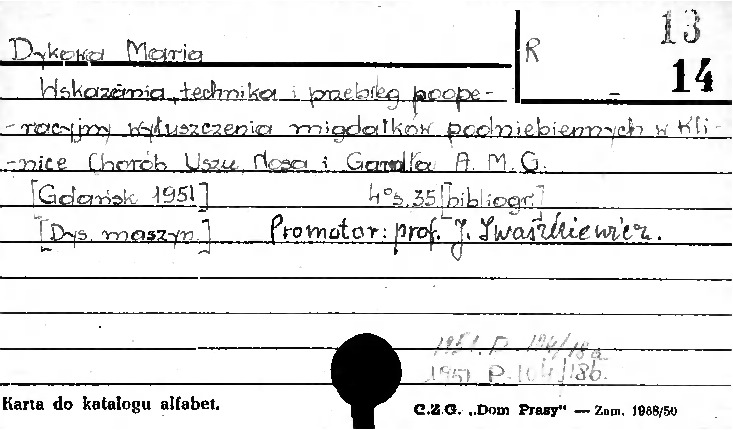 Dykowa Maria
R
13
14
Wskazania, technika i przebieg poope-
-racyjny wyłuszczenia migdałków podniebiennych w Kli-
-nice Chorób Uszu, Nosa i Gardła A. M. G.
[Gdańsk 1951] 4° s. 35 [bibliogr.]
[Dys. maszyn.] Promotor: prof. J. Iwaszkiewicz.
1951. P. 104/18a
1951 P. 104/18b.
Karta do katalogu alfabet.
C.Z.G. „Dom Prasy" — Zam. 1968/50